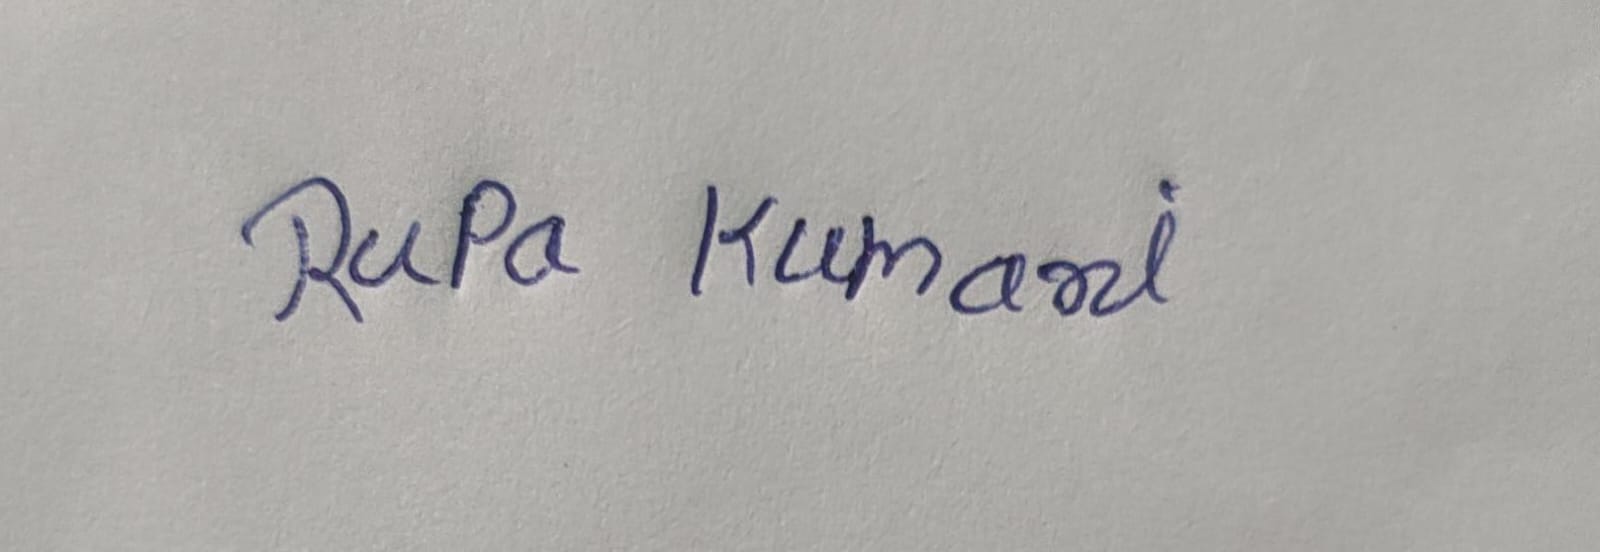 RuPa Kumari